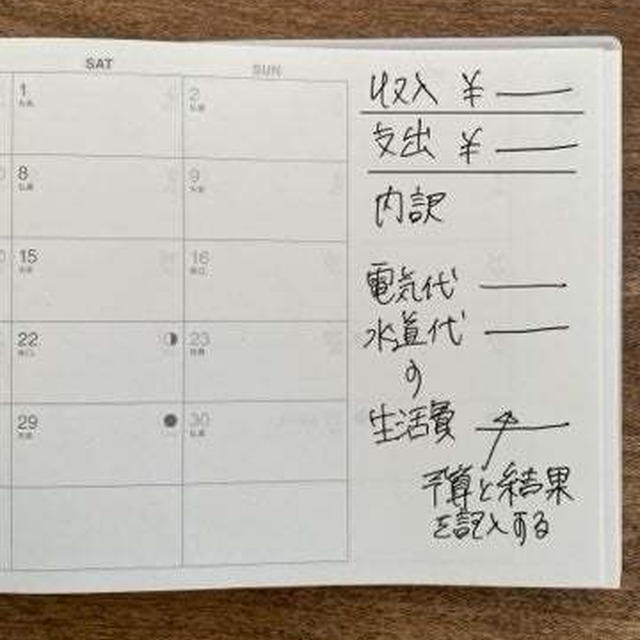 SAT SUN
1 2
8 9
15 16
22 23
29 30
収入 ¥
支出 ¥
内訳
電気代
水道代
生活費
予算と結果
を記入する